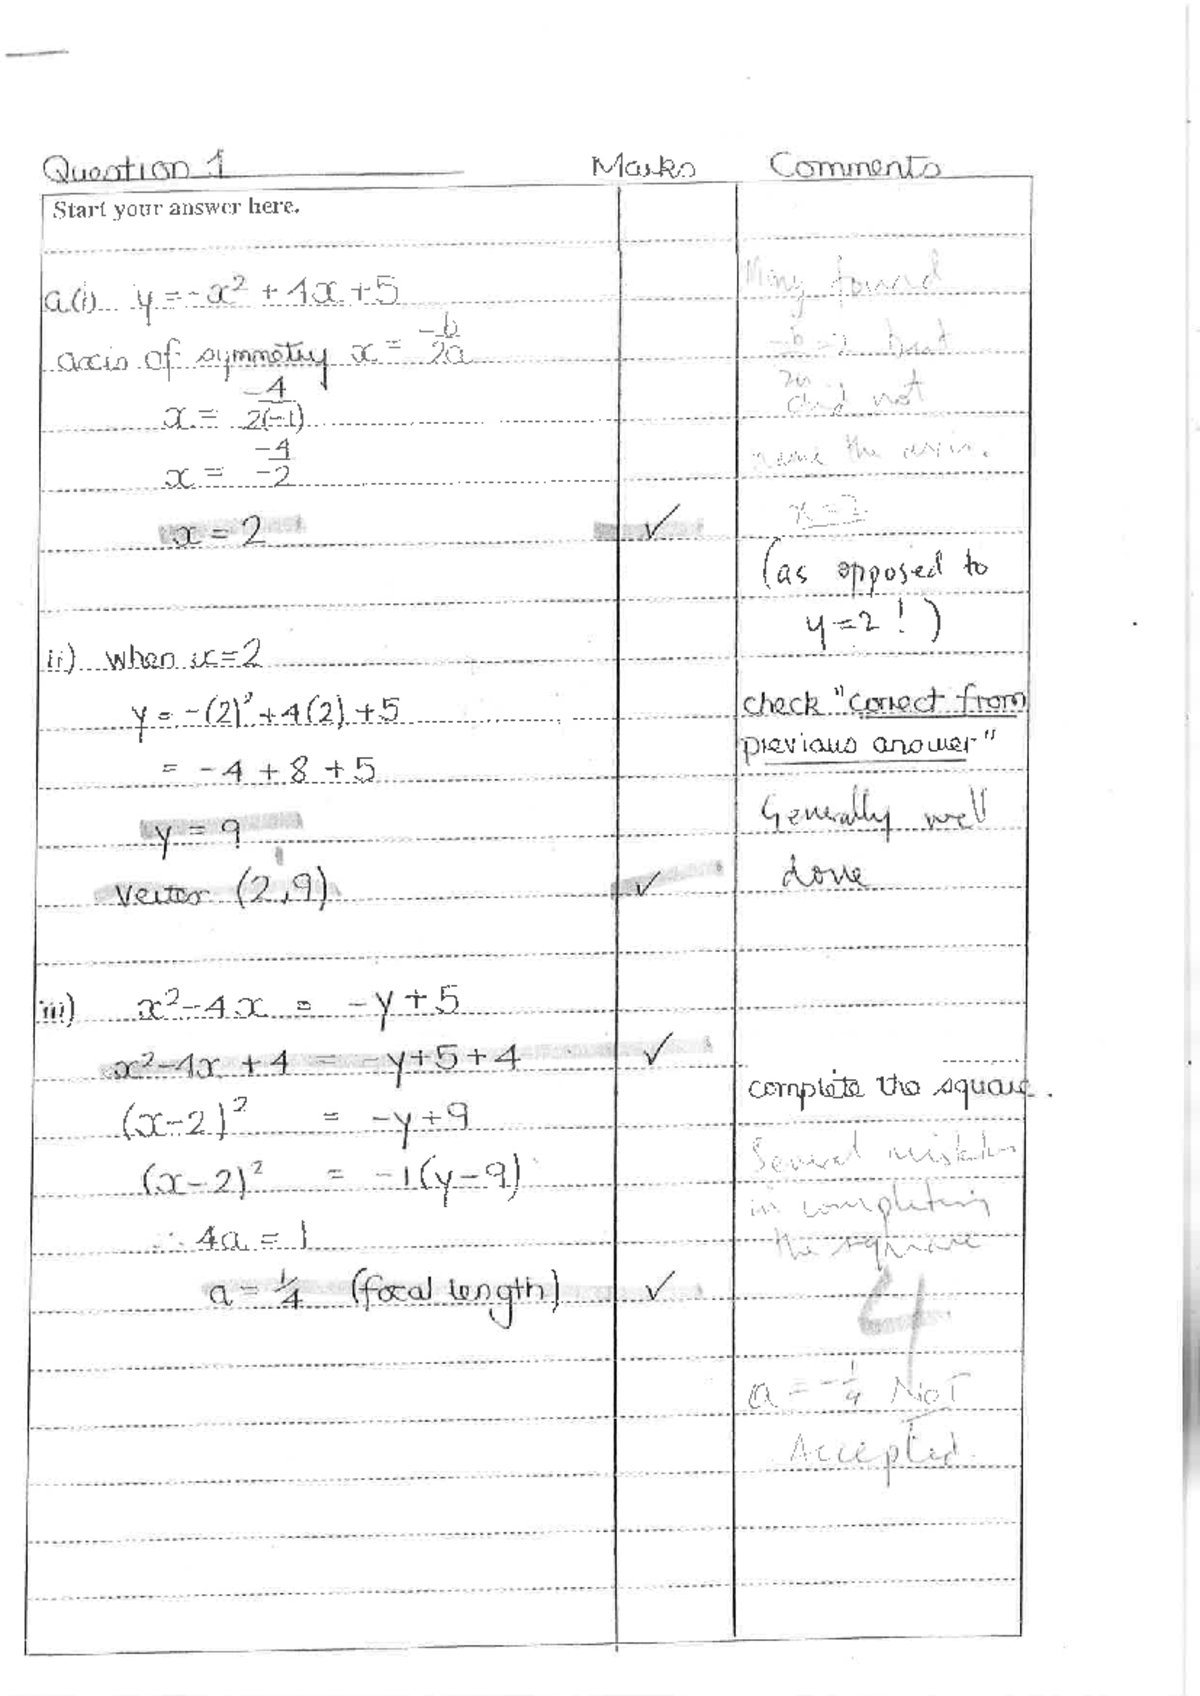 Question 1 Marks Comments
Start your answer here.
a(i) y = -x² + 4x + 5
axis of symmetry x = -b/2a
x = -4/2(-1)
x = -4/-2
x = 2 ✓
Many found
-b/2a = 2 but
did not
name the axis.
x = 2
(as opposed to
y = 2 ! )
ii) when x = 2
y = -(2)² + 4(2) + 5
= -4 + 8 + 5
y = 9
Vertex (2,9) ✓
check "correct from
previous answer"
Generally well
done
iii) x² - 4x = -y + 5
x² - 4x + 4 = -y + 5 + 4 ✓
(x-2)² = -y + 9
(x-2)² = -1(y-9)
∴ 4a = 1
a = 1/4 (focal length) ✓
complete the square.
Several mistakes
in completing
the square
4
a = -1/4 NOT
Accepted.